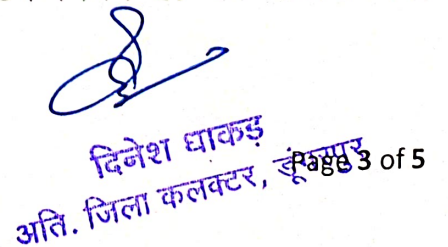 दिनेश धाकड़
अति. जिला कलक्टर, डूंगरपुर
Page 3 of 5